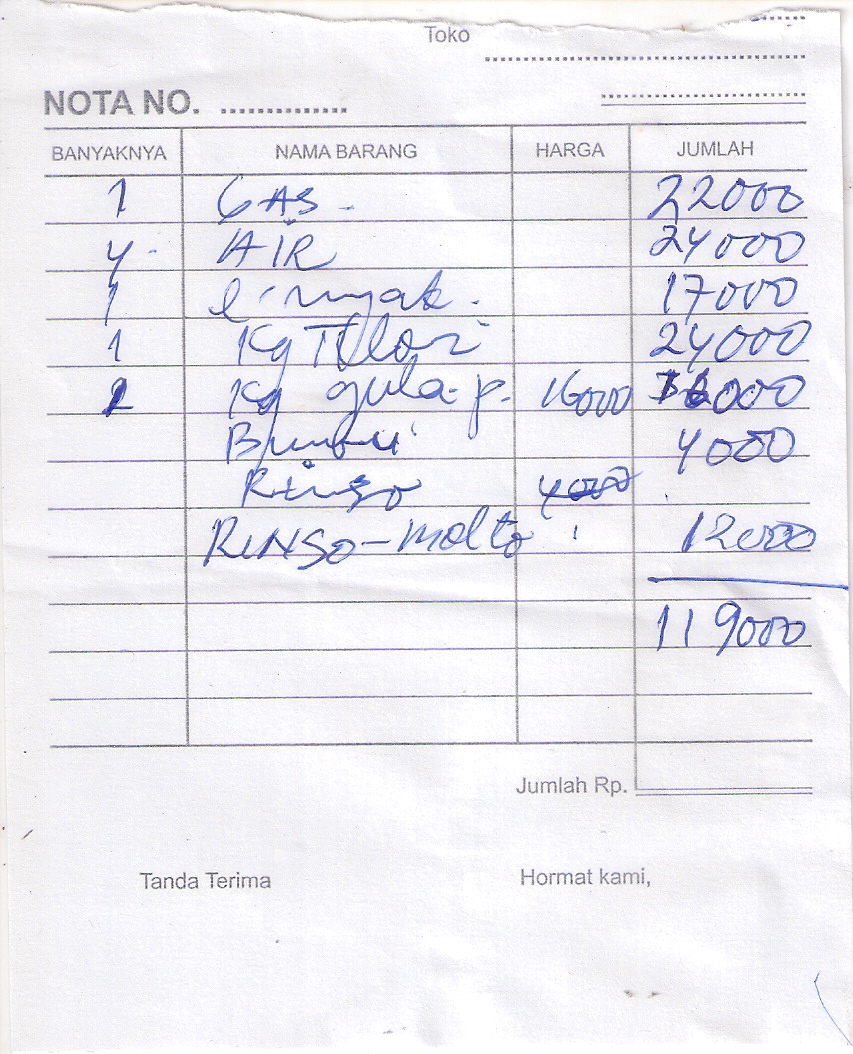 Toko
NOTA NO. ..............
BANYAKNYA NAMA BARANG HARGA JUMLAH
1 GAS - 22000
4 - AIR 24000
1 l minyak. 17000
1 Kg Telor 24000
1 Kg gula p. 16000 16000
Bumbu 4000
Rinso 4000
RINSO - molto 12000
119000
Jumlah Rp.
Tanda Terima Hormat kami,